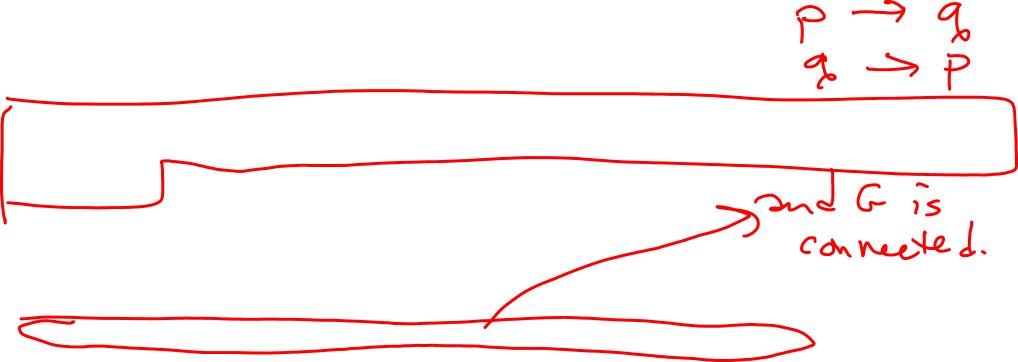 p → q
q → p
and G is
connected.